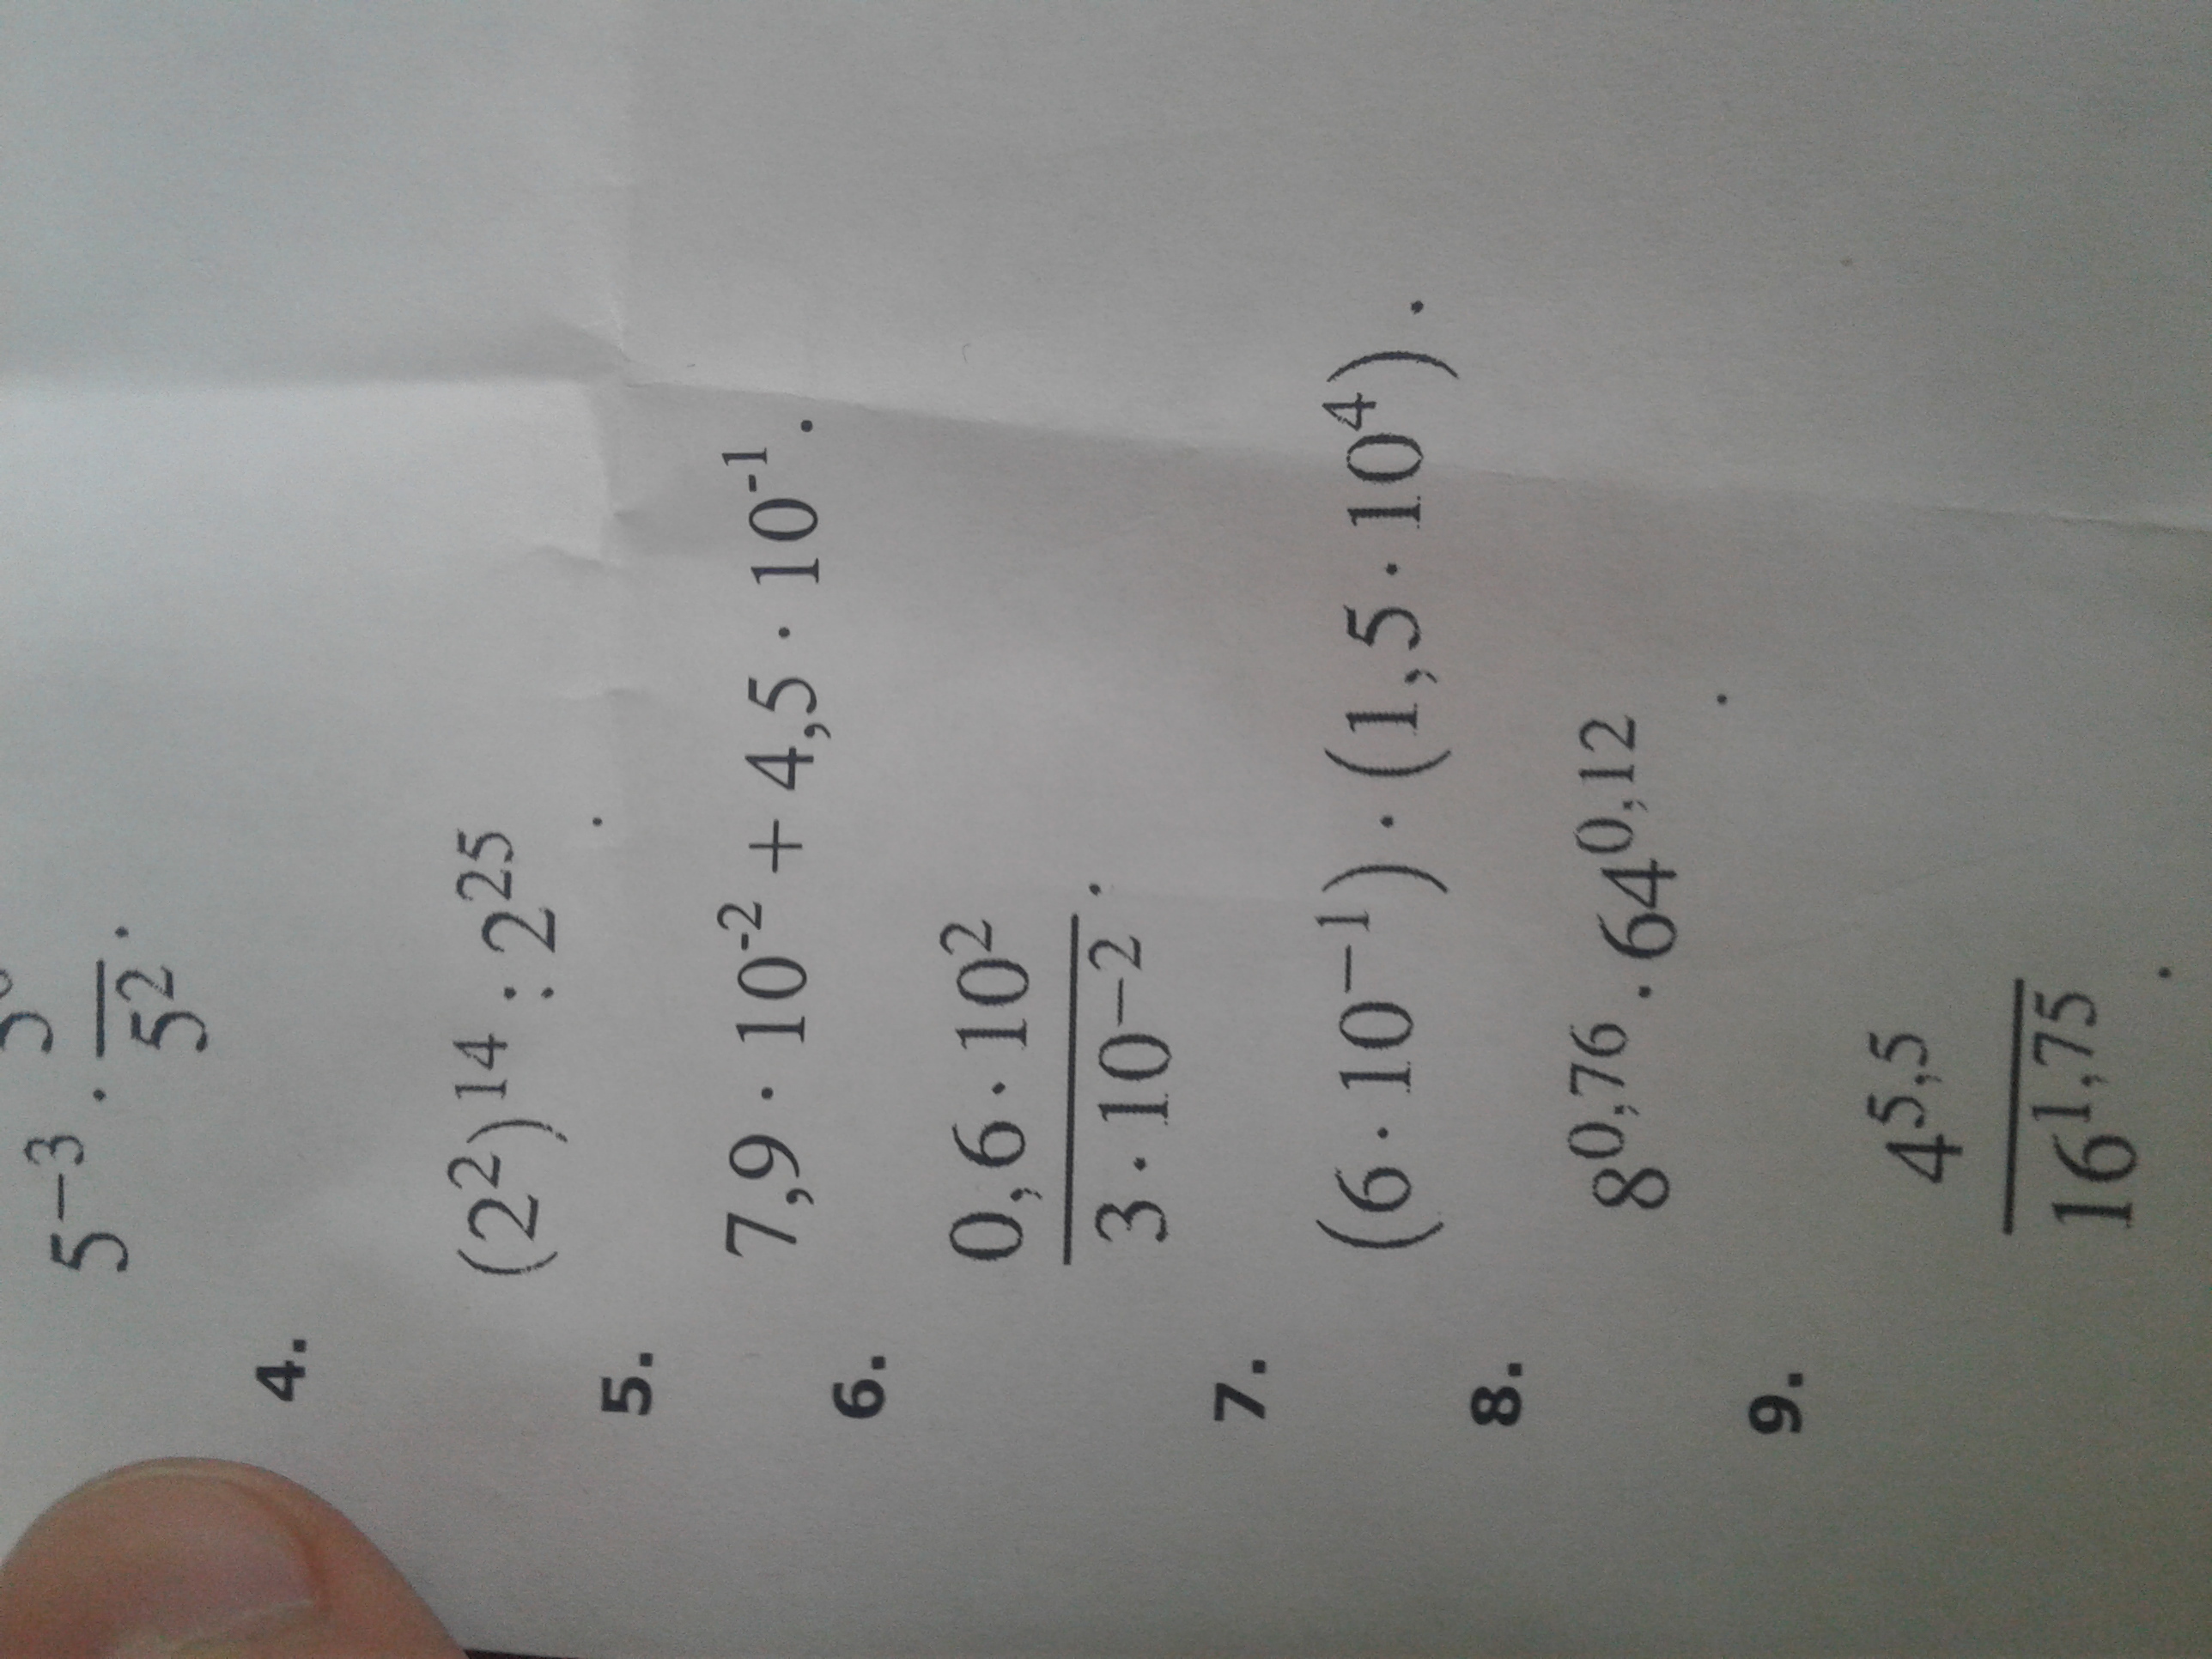 5⁻³ · —
5²·
4.
(2²)¹⁴ : 2²⁵ .
5.
7,9 · 10⁻² + 4,5 · 10⁻¹.
6.
0,6 · 10²
3 · 10⁻² .
7.
(6 · 10⁻¹) · (1,5 · 10⁴) .
8.
8⁰,⁷⁶ · 64⁰,¹² .
9.
4⁵,⁵
16¹,⁷⁵ .